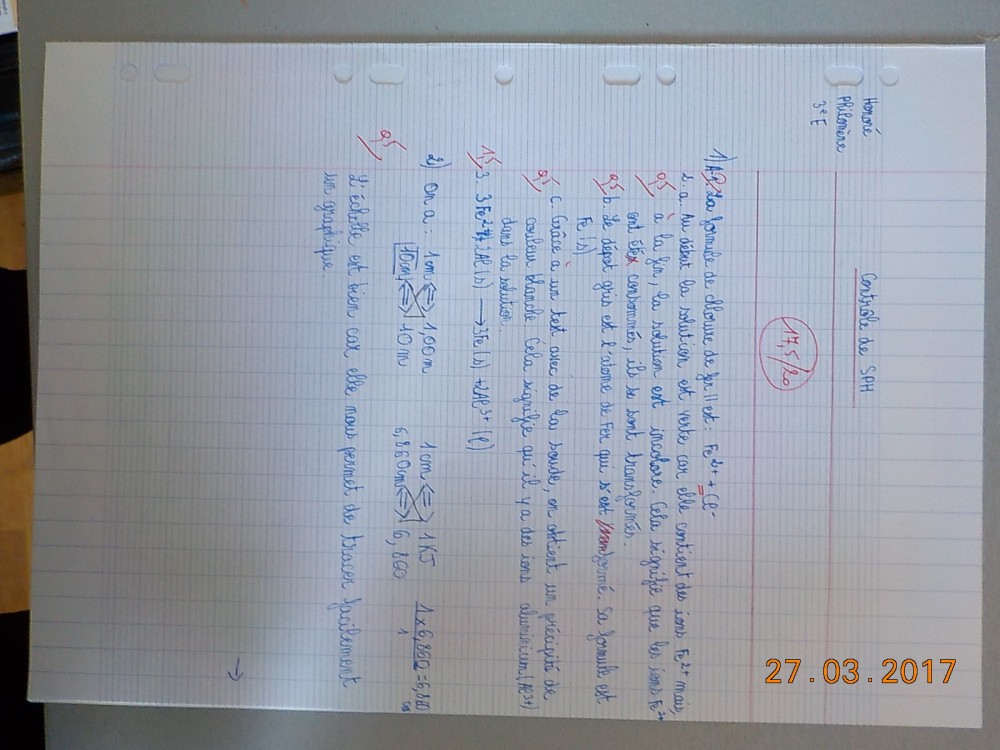 Honoré
Philomène
3e E
Contrôle de SPH
17,5/20
1) A-1. La formule de chlorure de fer II est : Fe2+ + Cl-
2. a. Au début la solution est verte car elle contient des ions Fe2+ mais,
0,5 à la fin, la solution est incolore. Cela signifie que les ions Fe2+
ont étés consommés, ils se sont transformés.
0,5 b. Le dépot gris est l'atome de Fer qui s'est transformé. Sa formule est
Fe(s)
0,5 c. Grâce à un test avec de la soude, on obtient un précipité de
couleur blanche. Cela signifie qu'il y a des ions aluminium (Al3+)
dans la solution.
1,5 3. 3Fe2+ + 2Al(s) → 3Fe(s) + 2Al3+ (l)
2) On a : 1cm ⇔ 1,00m 1cm ⇔ 1KJ 1x6,860 = 6,860
10cm ⇔ 10m 6,860cm ⇔ 6,860 1
0,5
L'échelle est bien car elle nous permet de tracer facilement
un graphique.
→
27.03.2017